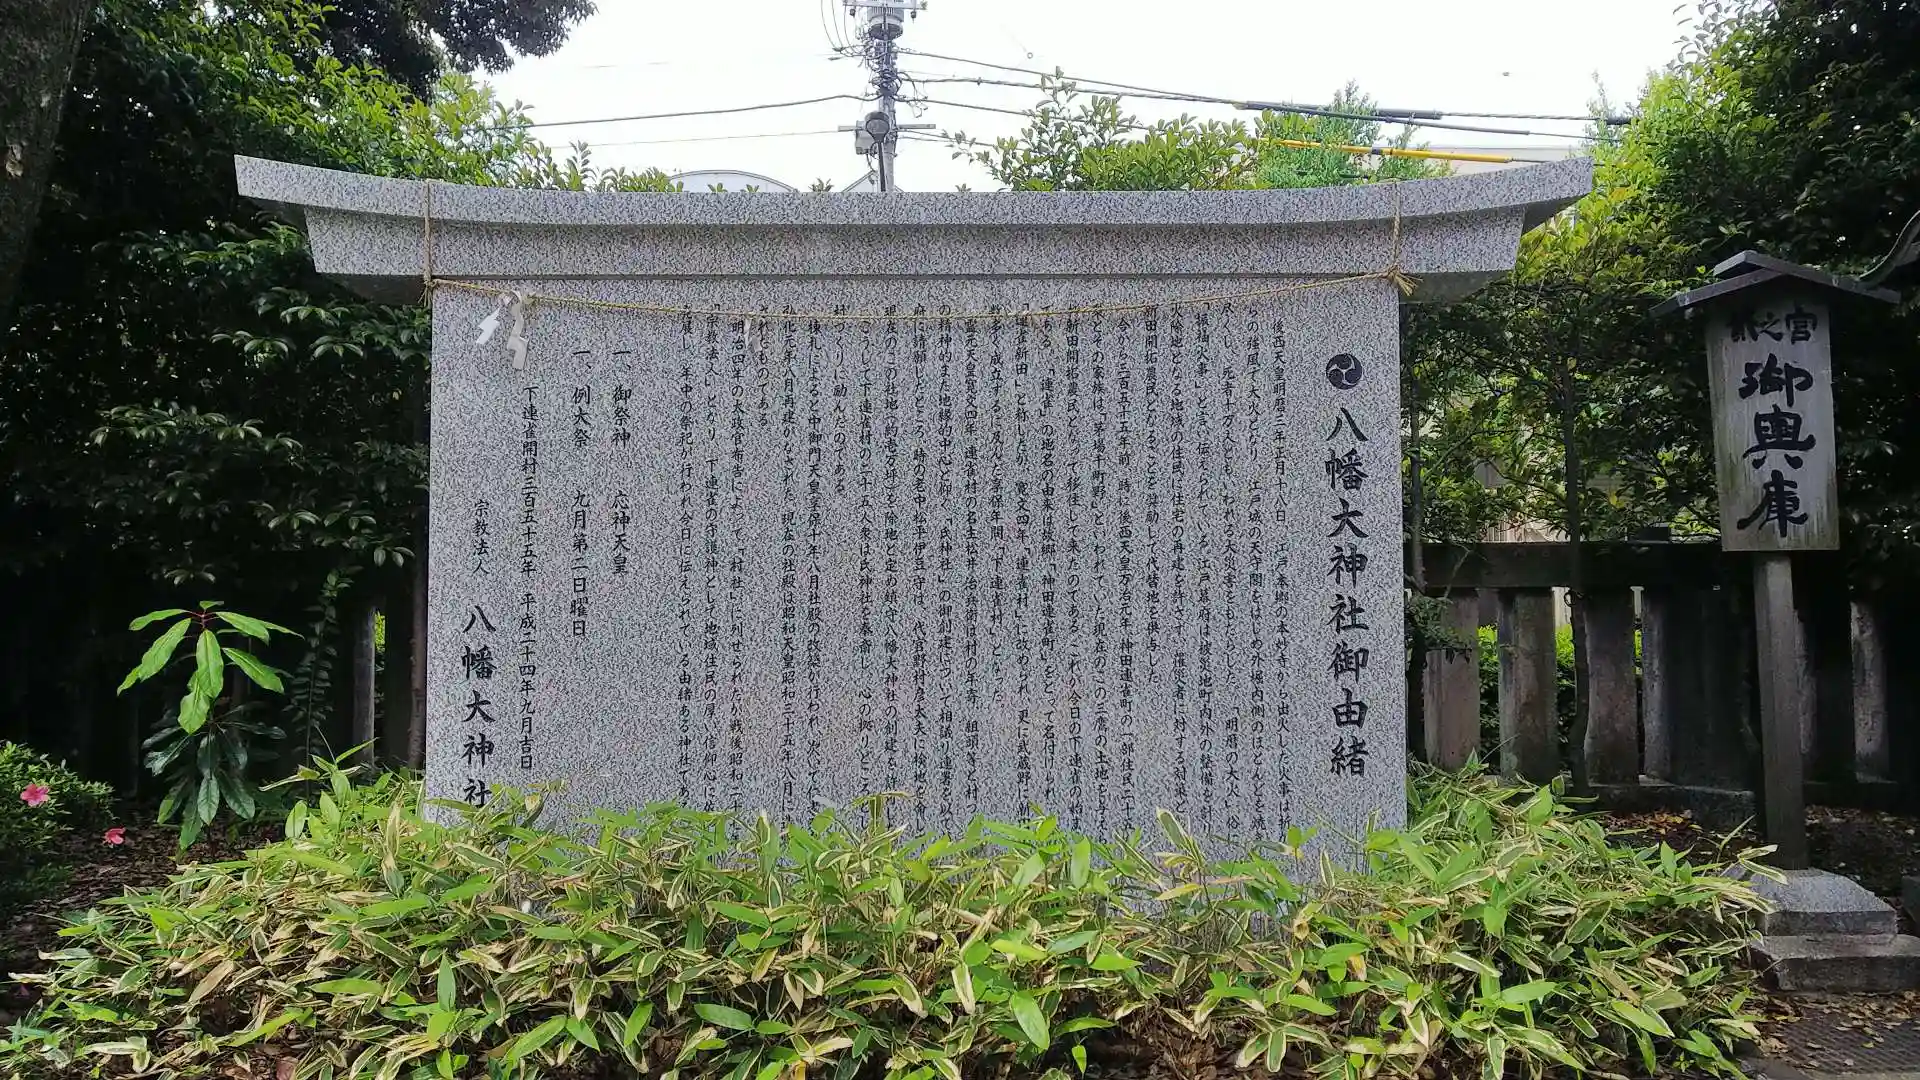 八幡大神社御由緒
後西天皇明暦三年正月十八日、江戸本郷の本妙寺から出火した火事は折か
らの強風で大火となり、江戸城の天守閣をはじめ外堀内側のほとんどを焼
尽くし、死者十万人とも、いわれる大災害をもたらした。「明暦の大火」俗
「振袖火事」と言い伝えられている。江戸幕府は被災地町内外の整備を計り
火除地となる地域の住民に住宅の再建を許さず、罹災者に対する対策と
新田開拓農民となることを奨励して代替地を供与した。
今から三百五十五年前、時は後西天皇万治元年、神田連雀町の一部住民二十五
家とその家族は、「茅場千町野」といわれていた現在のこの三鷹の土地を与え
新田開拓農民となって移住して来たのである。これが今日の下連雀の始ま
である。「連雀」の地名の由来は故郷「神田連雀町」をとって名付けられ
「連雀新田」と称したが、寛文四年「連雀村」に改められ、更に武蔵野に新田
数多く成立するに及んだ享保年間「下連雀村」となった。
霊元天皇寛文四年、連雀村の名主松井治兵衛は村の年寄、組頭等と村づ
の精神的また地縁的中心と仰ぐ「氏神社」の御創建について相議り連署を以て
府に請願したところ、時の老中松平伊豆守は、代官野村彦太夫に検地を命じ
現在のこの社地(約壱万坪)を除地と定め鎮守八幡大神社の創建を許可した
こうして下連雀村の二十五人衆は氏神社を奉斎し、心の拠りどころとし
村づくりに励んだのである。
棟札によると中御門天皇享保十年八月社殿の改築が行われ、次いで仁孝
弘化元年八月再建がなされた。現在の社殿は昭和天皇昭和三十五年八月に造
されたものである。
明治四年の太政官布告によって「村社」に列せられたが戦後昭和二十
「宗教法人」となり、下連雀の守護神として地域住民の厚い信仰心に依
発展し、年中の祭祀が行われ今日に伝えられている由緒ある神社であ
一、御祭神 応神天皇
一、例大祭 九月第二日曜日
下連雀開村三百五十五年 平成二十四年九月吉日
宗教法人 八幡大神社
宮之弐
御輿庫